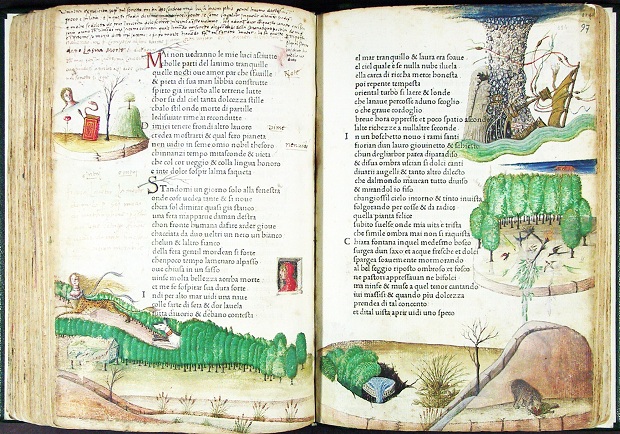 Mai non uedranno le mie luci asciutte
cholle parti del lanimo tranquille
quelle noti oue amor par che sfauille
& pieta di sua man labbia construtte
spirto gia inuicto alle terrene lutte
chor su dal ciel tanta dolcezza stille
chalo stil onde morte di partille
le disuiate rime ai recondutte
D i miei tenere frondi altro lauoro
credea mostrarti & qual fero pianeta
nen uidio in seme o mio nobil thesoro
chinnanzi tempo mitasconde & uieta
che col cor ueggio & colla lingua honoro
e inte dolce sospir lalma saqueta
Standomi un giorno solo alla fenestra
onde cose uedea tante & si noue
chera sol dimirar quasi gia stanco
una fera mapparue da man destra
chon fronte humana dafar arder gioue
chacciata da duo ueltri un nero un bianco
chelun & laltro fianco
della fera gentil mordean si forte
chenpoco tempo lamenaro alpasso
oue chiusa in un sasso
uinse molta bellezza acerba morte
et me fe sospirar sua dura sorte
I ndi per alto mar uidi una naue
colle sarte di seta & dor lauela
tutta dauorio & debano contesta
97
el mar tranquillo & laura era soaue
el ciel quale e se nulla nube iluela
ella carca di riccha merce honesta
poi repente tempesta
oriental turbo si laere & londe
che lanaue percosse aduno scoglio
o che graue cordoglio
breue hora oppresse et poco spatio asconde
lalte richezze a nullaltre seconde
I n un boschetto nouo i rami santi
fiorian dun lauro giouinetto & schietto
chun degliarbor parea di paradiso
& di sua ombra uscian si dolci canti
diuarii augelli & tanto altro dilecto
che dalmondo mauean tutto diuiso
& mirandol io fiso
changiossi cielo intorno & tinto inuista
folgorando per cosse & da radice
quella pianta felice
subito suelse onde mia uita e trista
che simile ombra mai non si raquista
C hiara fontana in quel medesmo bosco
surgea dun saxo et acque fresche et dolci
spargea soauemente mormorando
al bel seggio riposto ombroso et fosco
ne pastori appressauan ne bifolci
ma ninfe & muse a quel tenor cantando
iui massisi & quando piu dolcezza
prendea di tal concento
et di tal uista aprir uidi uno speco